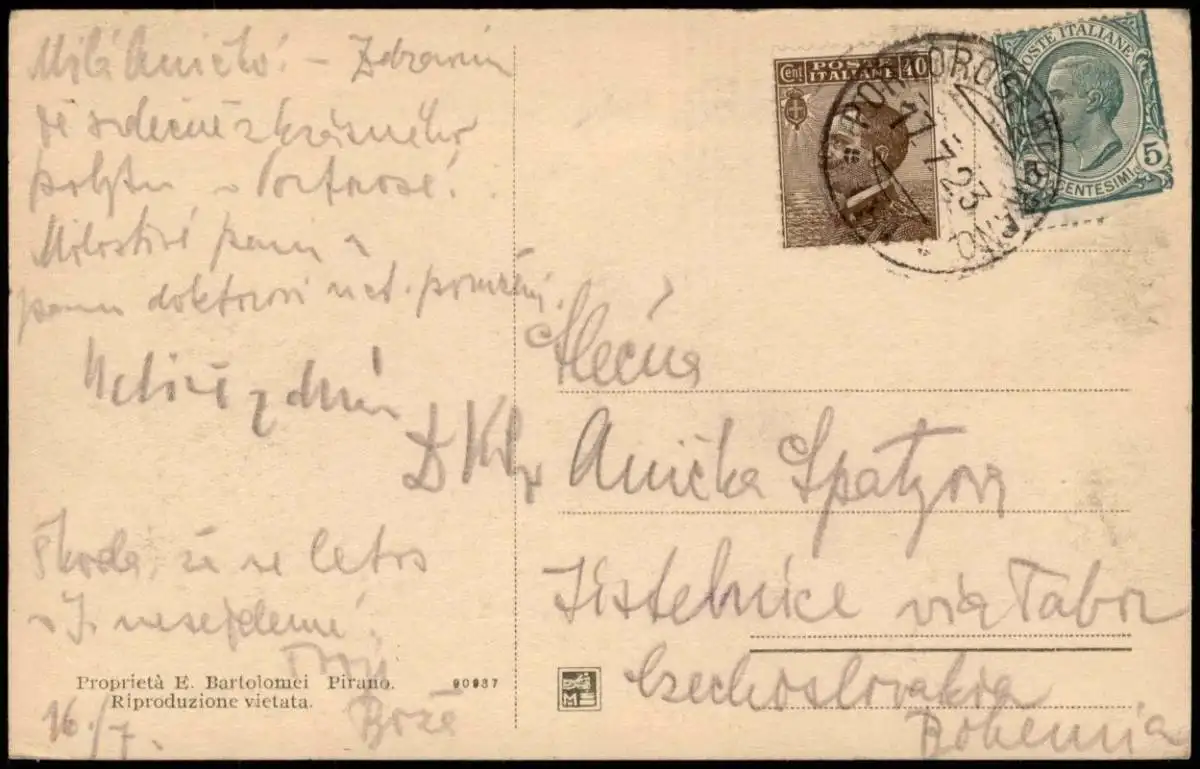 Milá Aničko! – Zdravím
tě srdečně z krásného
pobytu v Portorose.
Milostivé paní a
panu doktorovi uct. poruč.
Škoda, že se letos
v J. nesejdeme.
Tvoje
Boža
16./7.
Proprietà E. Bartolomei Pirano.
Riproduzione vietata.
90937
M
Cent POSTE ITALIANE 40
POSTE ITALIANE
5 CENTESIMI 5
PORTOROSE
17.7.23
Slečna
Anička Spatzova
Jistebnice via Tabor
Czechoslovakia
Bohemia